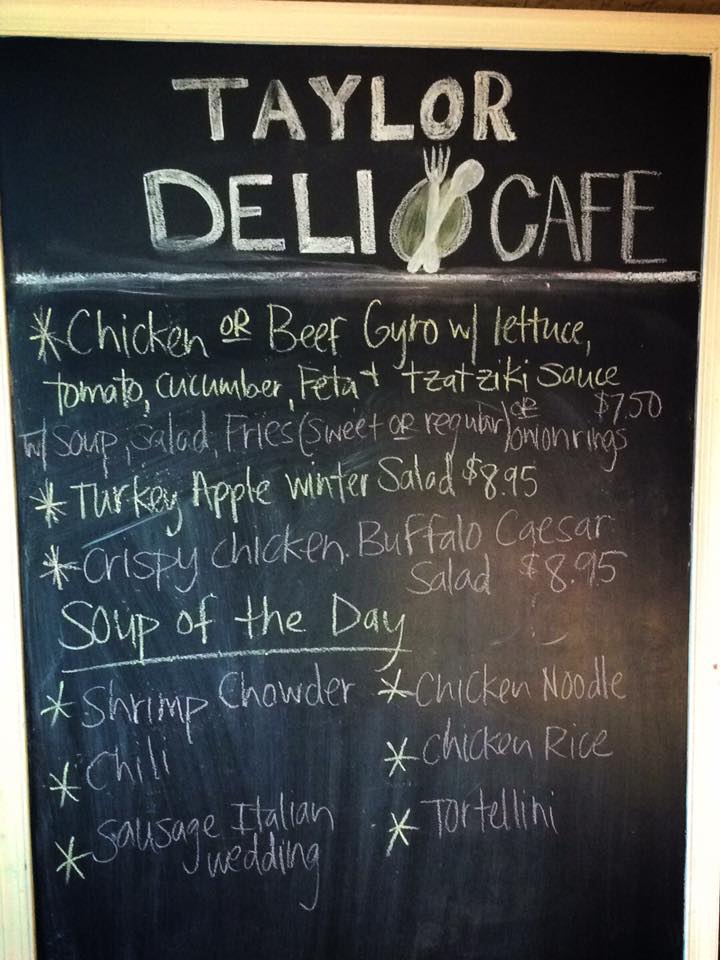 TAYLOR
DELI CAFE
* Chicken OR Beef Gyro w/ lettuce,
tomato, cucumber, Feta + tzatziki sauce
$7.50
w/ soup, salad, Fries (sweet OR regular) OR onion rings
* Turkey Apple winter Salad $8.95
* Crispy chicken Buffalo Caesar
Salad $8.95
Soup of the Day
* Shrimp Chowder
* Chili
* Sausage Italian
wedding
* Chicken Noodle
* Chicken Rice
* Tortellini